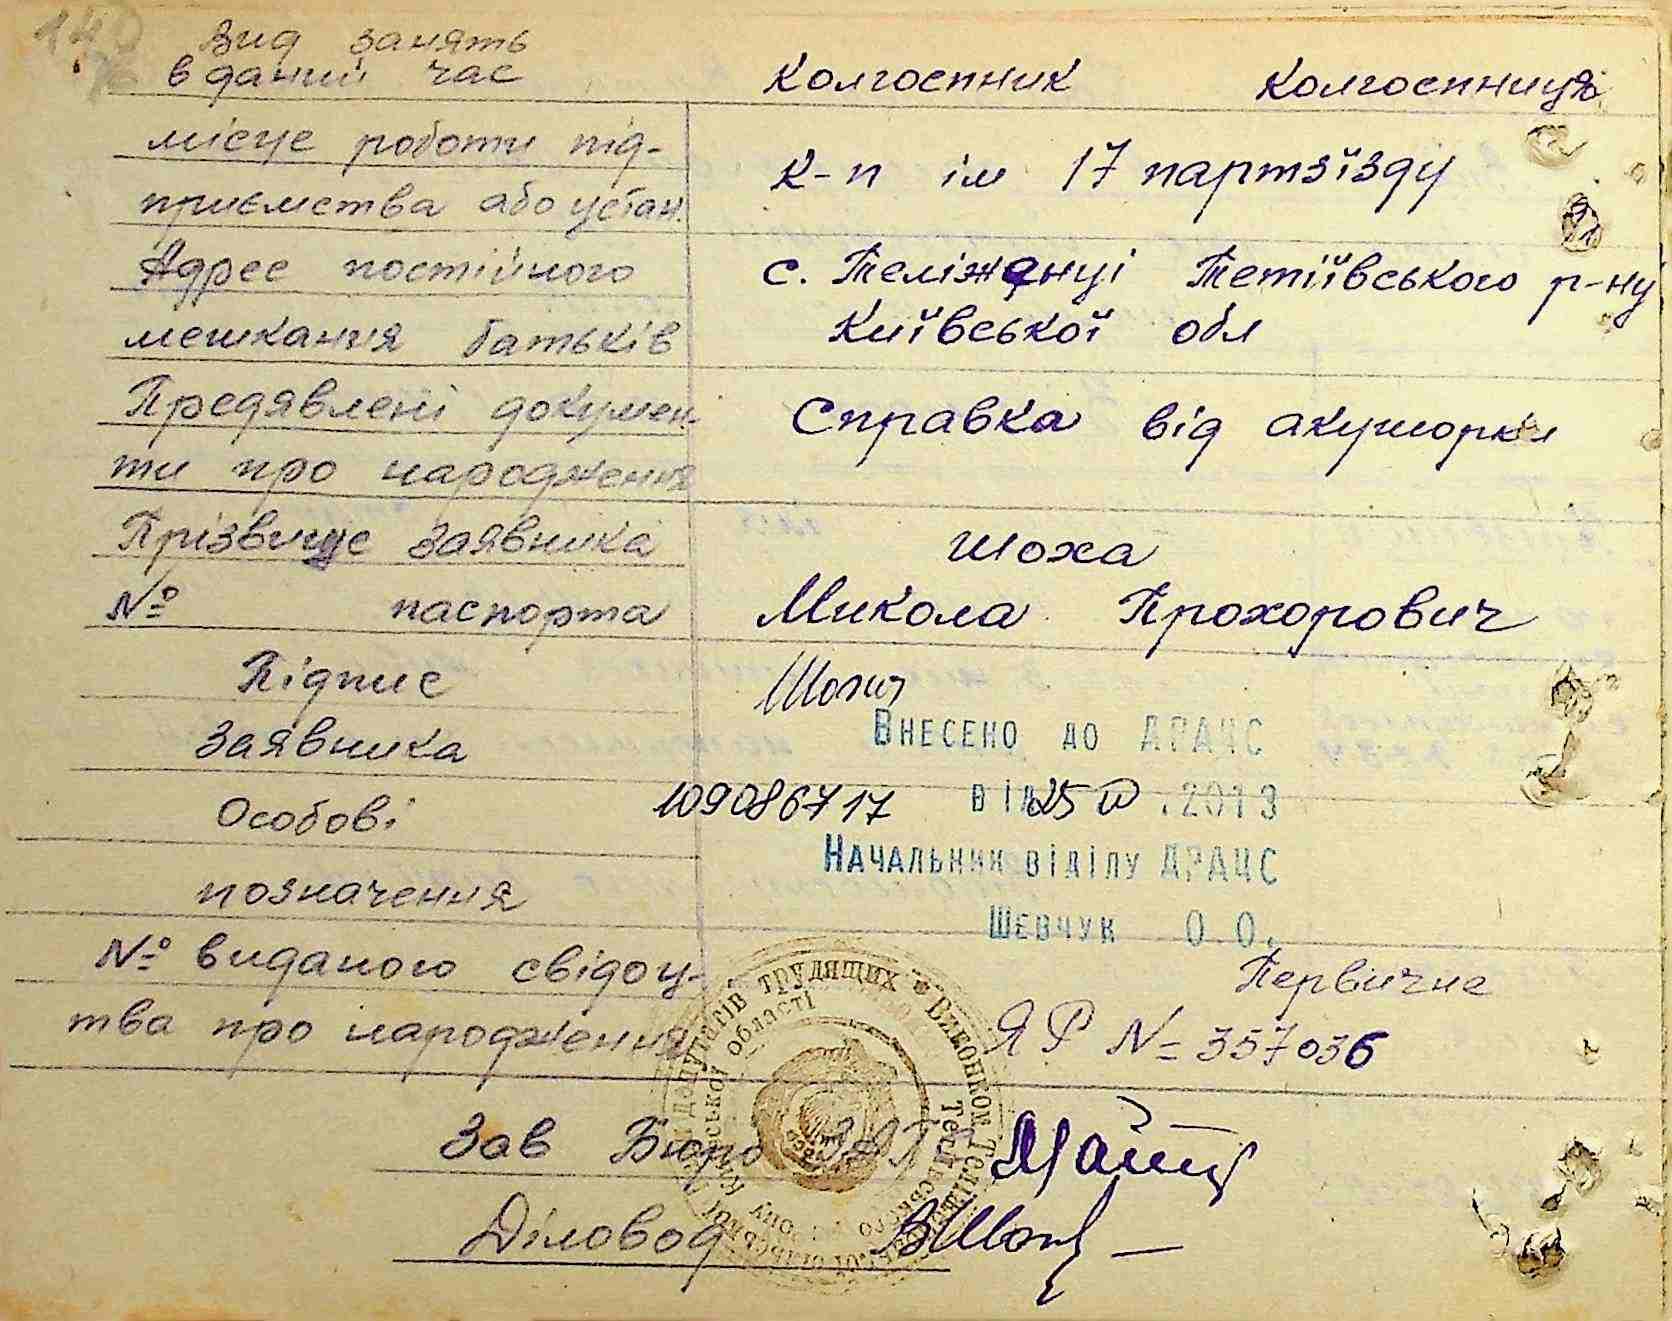 Вид занять
в даний час колгоспник колгоспниця
місце роботи під-
приємства або устан. к-п ім 17 партзїзду
Адрес постійного с. Теліженці Тетіївського р-ну
мешкання батьків Київської обл
Предявлені докумен-
ти про народження Справка від акушорки
Прізвище заявника Шоха
№ паспорта Микола Прохорович
Підпис
Заявника
Внесено до ДРАЦС
Особові 109086717 від 25 .2013
Начальник відділу ДРАЦС
позначення
Шевчук О.О.
№ виданого свідоц- Первичне
тва про народження ЯР № 357036
Зав Бюро ЗАГС
Діловод
депутатів трудящих * Виконком
області